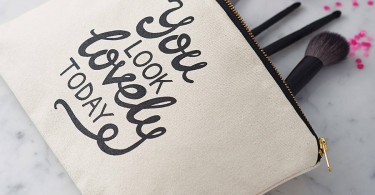 You
LOOK
lovely
TODAY